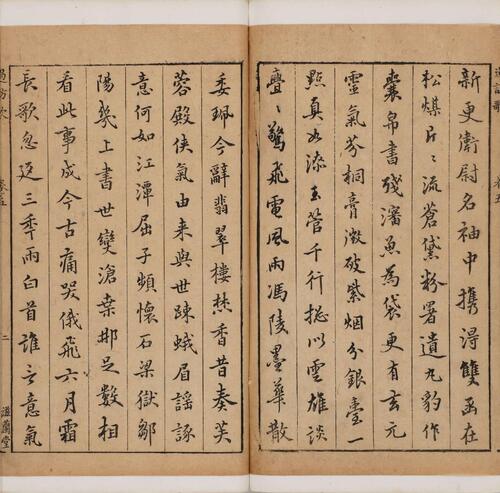 新更衛尉名袖中攜得雙函在
松煤片〻流蒼黛粉署遺丸豹作
囊帛書殘瀋魚為袋更有玄元
靈氣芬桐膏瀲破紫烟分銀壺一
點真如漆玉管千行掞以雲雄談
亹〻驚飛電風雨馮陵墨華散
委珮今辭翡翠樓焚香昔奏芙
蓉殿俠氣由来與世疎蛾眉謡諑
意何如江潭屈子頻懷石梁獄鄒
陽幾上書世變滄桑那足數相
看此事成今古痛哭俄飛六月霜
長歌忽迓三秊雨白首誰言意氣
卷五
二
滋蘭堂